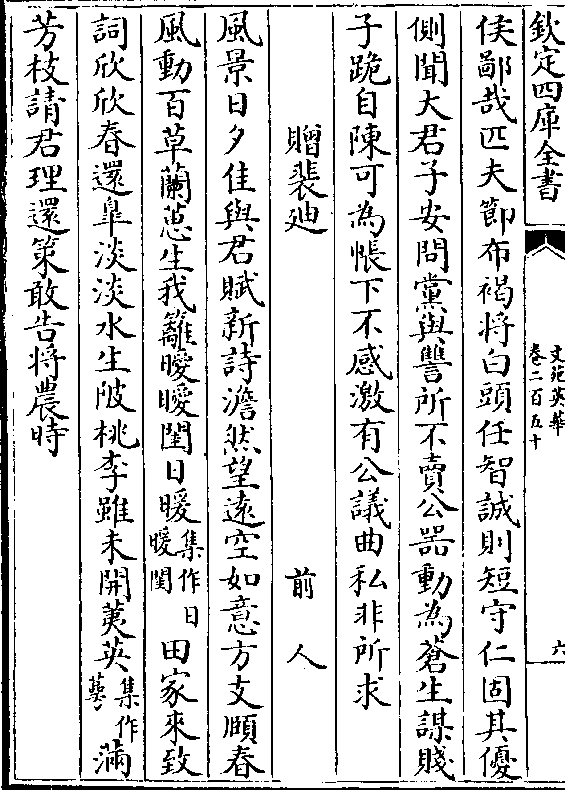 欽定四庫全書
文苑英華
卷二百五十
六
侯鄙哉匹夫節布褐將白頭任智誠則短守仁固其優
側聞大君子安問黨與讐所不賣公器動為蒼生謀賤
子跪自陳可為帳下不感激有公議曲私非所求
贈裴廸　前人
風景日夕佳與君賦新詩澹然望遠空如意方支頤春
風動百草蘭蕙生我籬曖曖閨日暖集作日暖閨田家來致
詞欣欣春還臯淡淡水生陂桃李雖未開荑英集作萼滿
芳枝請君理還策敢告將農時